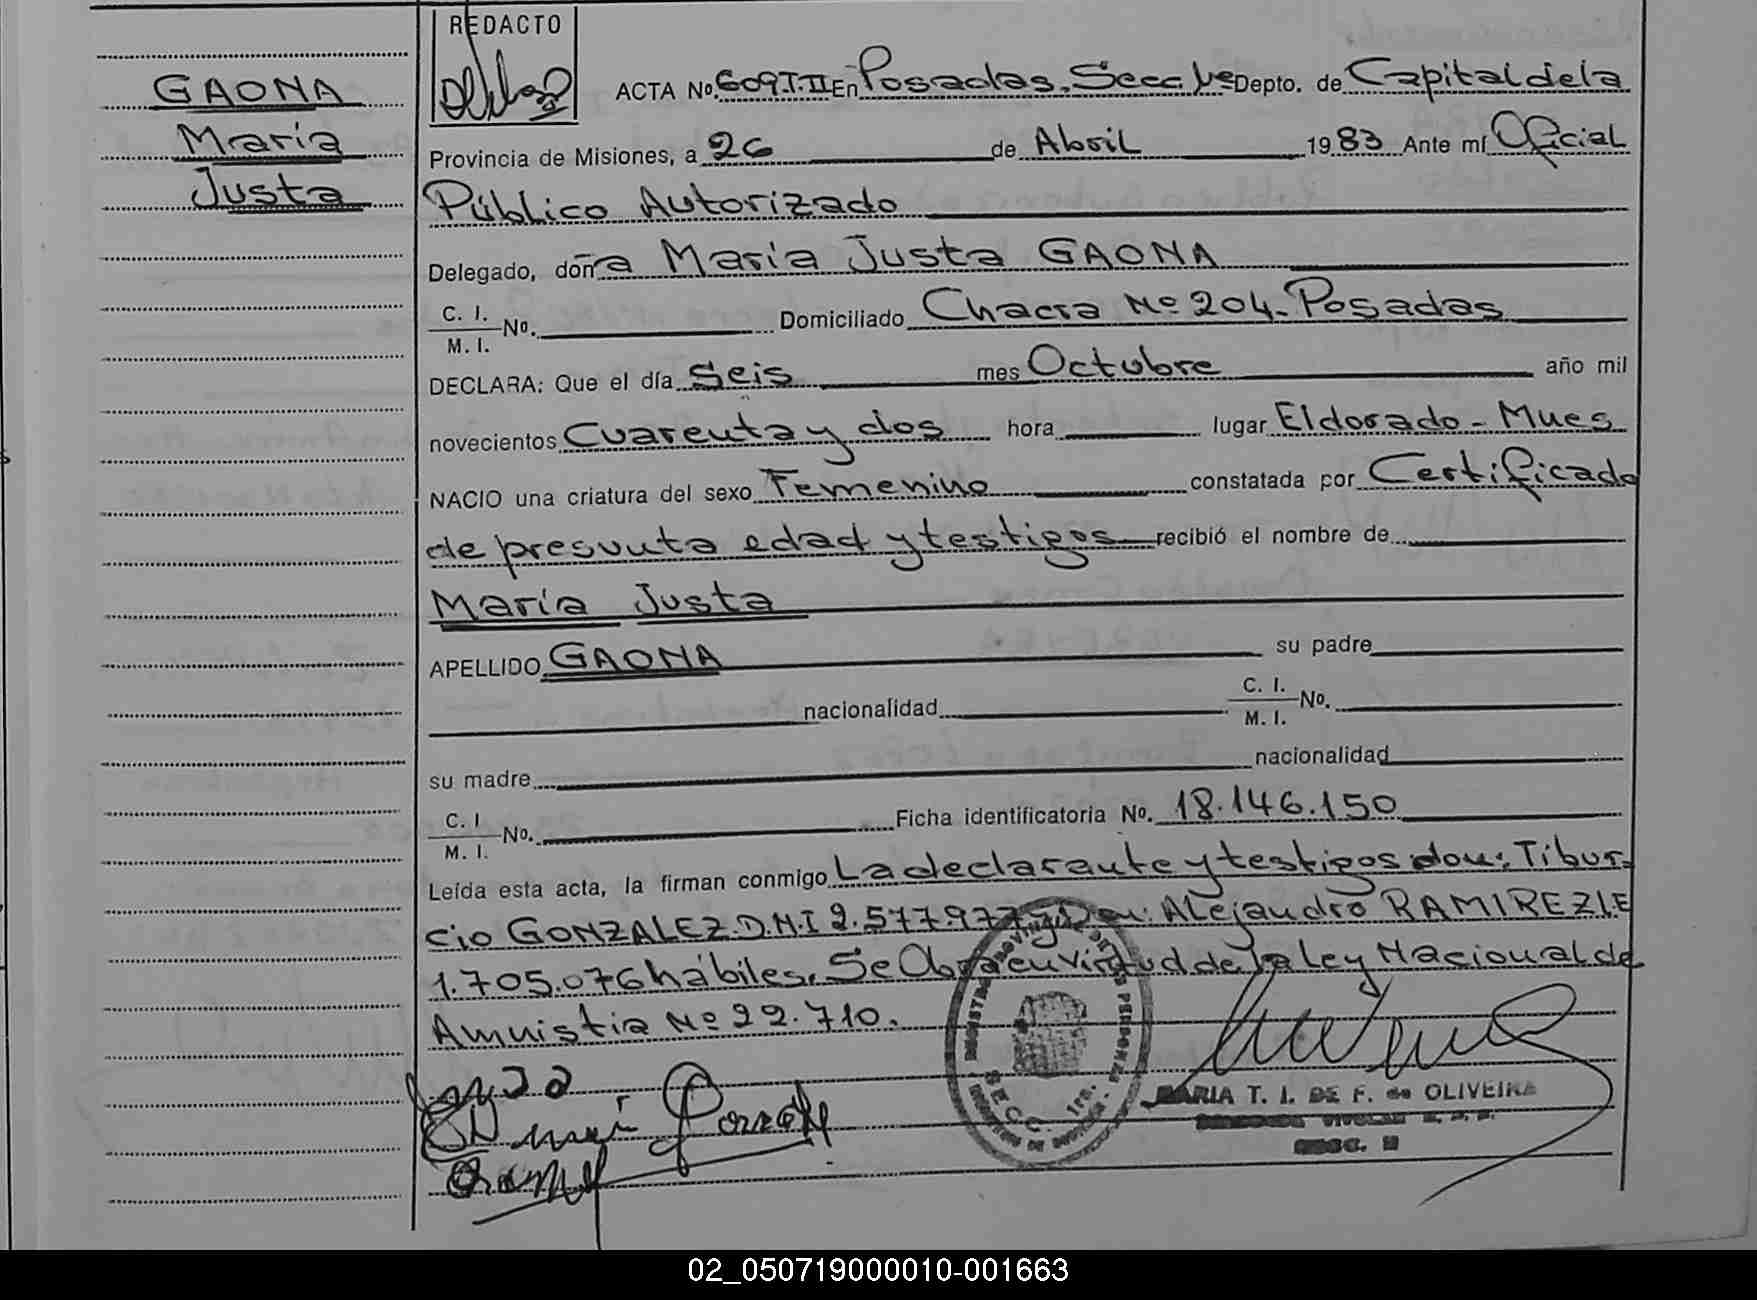 GAONA
Maria
Justa
REDACTO
ACTA No. 609 T. II En Posadas, Secc. 1ra Depto. de Capital de la
Provincia de Misiones, a 26 de Abril 1983 Ante mí Oficial
Público Autorizado
Delegado, doña Maria Justa GAONA
C. I.
M. I. No. Domiciliado Chacra Nº 204. Posadas
DECLARA: Que el día Seis mes Octubre año mil
novecientos Cuarenta y dos hora lugar Eldorado - Mnes
NACIO una criatura del sexo Femenino constatada por Certificado
de presunta edad y testigos recibió el nombre de
Maria Justa
APELLIDO GAONA su padre
nacionalidad C. I.
M. I. No.
su madre nacionalidad
C. I
M. I. No. Ficha identificatoria No. 18.146.150
Leída esta acta, la firman conmigo La declarante y testigos don: Tibur-
cio GONZALEZ D.N.I 2.577.977 y Don: Alejandro RAMIREZ L.E
1.705.076 hábiles. Se Obra en Virtud de la Ley Nacional de
Amnistia Nº 22.710.
REGISTRO PROVINCIAL DE LAS PERSONAS
SECC. 1ra.
MARIA T. I. DE F. de OLIVEIRA
SECC.
02_050719000010-001663